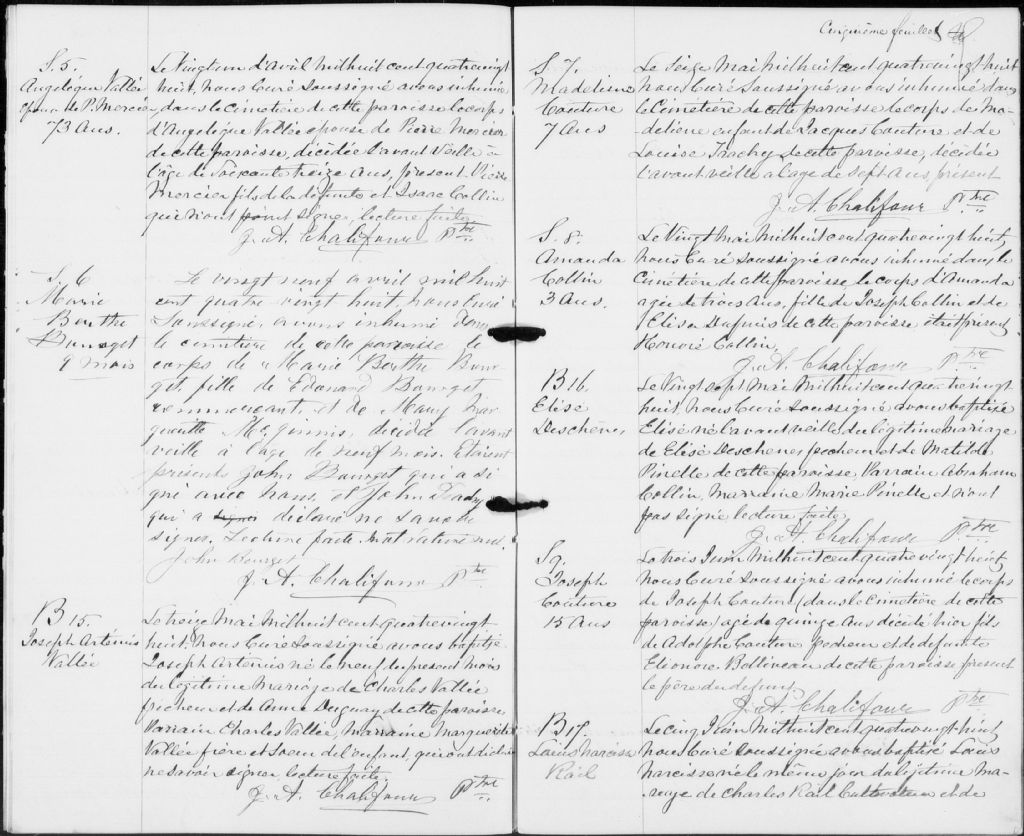 S. 5.
Angélique Vallée
épouse de P. Mercier
73 Ans.
Le Vingt un d'avril mil huit cent quatre vingt
huit, nous Curé soussigné avons inhumé
dans le Cimetière de cette paroisse le corps
d'Angelique Vallée épouse de Pierre Mercier
de cette paroisse, décédée l'avant veille à
l'âge de Soixante treize ans, présent Pierre
Mercier fils de la défunte et Isaac Collin
qui n'ont point signé, lecture faite
J. A. Chalifour Ptre
S. 6
Marie
Berthe
Bourget
9 mois
Le vingt neuf avril mil huit
cent quatre vingt huit, nous Curé
Soussigné, avons inhumé dans
le cimetière de cette paroisse le
corps de Marie Berthe Bour-
get, fille de Edouard Bourget
commerçant, et de Mary Mar-
guerite McGinnis, décédée l'avant
veille à l'age de neuf mois. Etaient
présents John Bourget qui a si-
gné avec nous, et John
qui a signé déclaré ne savoir
signer. Lecture faite.
John Bourget
J. A. Chalifour Ptre
B 15.
Joseph Artémis
Vallée
Le treize Mai Mil huit cent quatre vingt
huit, Nous Curé soussigné avons baptisé
Joseph Artémis né le neuf du présent mois
du légitime Mariage de Charles Vallée
pêcheur et de Anne Duguay de cette paroisse
Parrain Charles Vallée, Marraine Marguerite
Vallée frère et Soeur de l'enfant, qui ont déclaré
ne savoir signer lecture faite.
J. A. Chalifour Ptre
Cinquième feuillet
S. 7.
Madeleine
Couture
7 Ans
Le Seize Mai mil huit cent quatre vingt huit
Nous Curé Soussigné avons inhumé dans
le Cimetière de cette paroisse le corps de Ma-
deleine enfant de Jacques Couture et de
Louise Trachy de cette paroisse, décédée
l'avant veille a l'age de Sept Ans, présent
J. A. Chalifour Ptre
S. 8.
Amanda
Collin
3 Ans.
Le Vingt Mai Mil huit cent quatre vingt huit,
nous Curé Soussigné avons inhumé dans le
Cimetière de cette paroisse, le corps d'Amanda
agée de trois Ans, fille de Joseph Collin et de
Elisa Dupuis de cette paroisse était présent
Honoré Collin,
J. A. Chalifour Ptre
B 16.
Elisé
Deschênes
Le Vingt sept Mai Mil huit cent quatre vingt
huit, Nous Curé soussigné avons baptisé
Elisé né l'avant veille du légitime mariage
de Elisé Deschenes pecheur et de Matilde
Pinelle de cette paroisse, Parrain Abraham
Collin, Marraine Marie Pinelle et n'ont
pas signé lecture faite.
J. A. Chalifour Ptre
S 9.
Joseph
Couture
15 Ans
Le trois Juin Mil huit cent quatre vingt huit
Nous Curé Soussigné avons inhumé le corps
de Joseph Couture (dans le Cimetière de cette
paroisse) agé de quinze Ans décédé hier fils
de Adolphe Couture pecheur et de défunte
Elionore Belliveau de cette paroisse présent
le père du defunt.
J. A. Chalifour Ptre
B 17.
Louis Narcisse
Rail
Le cinq Juin Mil huit cent quatre vingt huit
nous Curé soussigné avons baptisé Louis
Narcisse né le même jour du légitime ma-
riage de Charles Rail Cultivateur et de